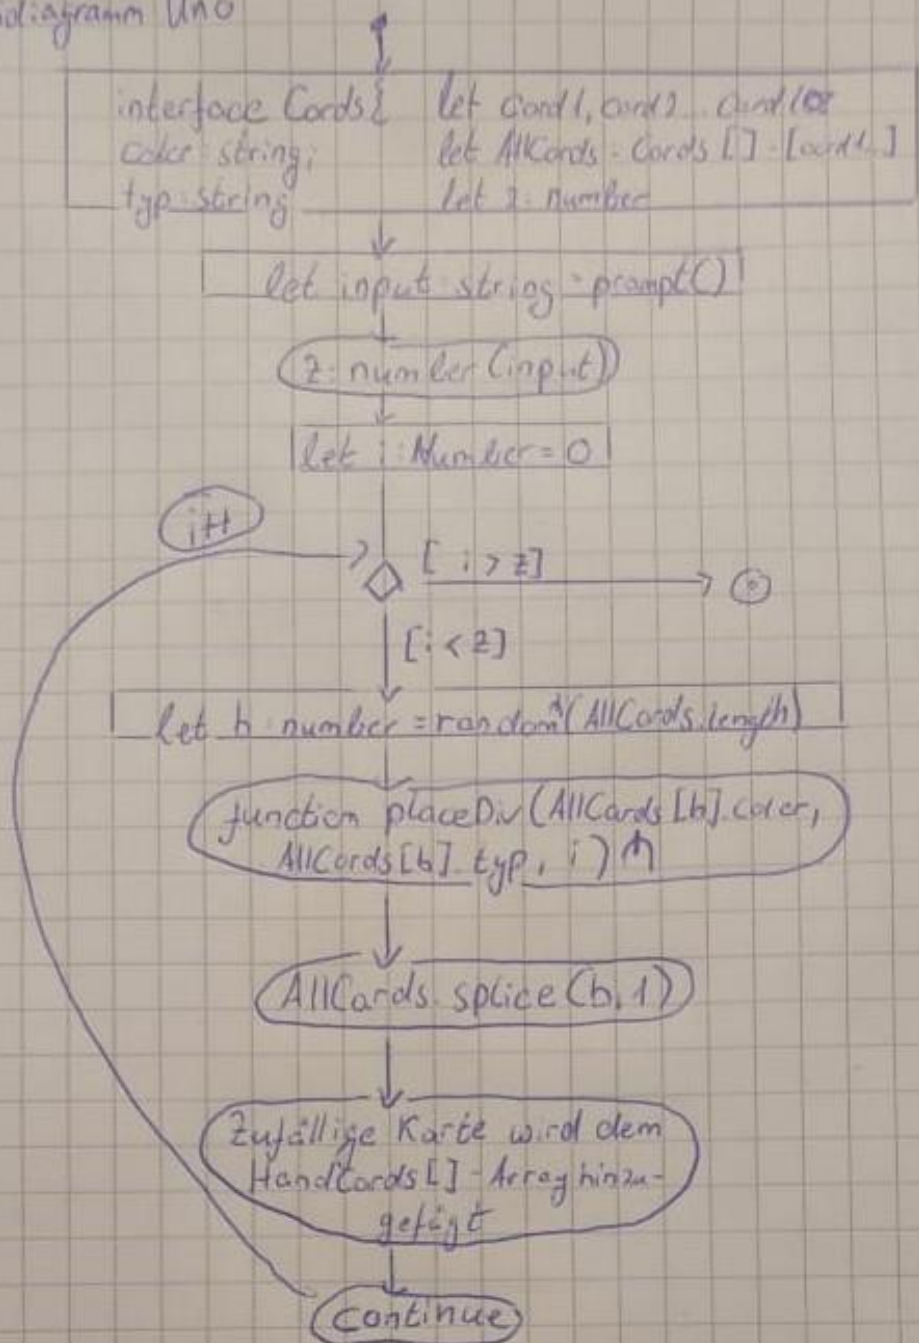 diagramm Uno
interface Cards{ let card1, card2 .. card108
color: string; let AllCards: Cards [] = [card1..]
typ: string let z: number
let input: string = prompt()
z = number (input)
let i: Number = 0
i++
[ i > z]
[i < z]
let b: number = random (AllCards.length)
function placeDiv (AllCards [b].color,
AllCards [b].typ, i)
AllCards. splice (b, 1)
Zufällige Karte wird dem
HandCards [] - Array hinzu-
gefügt
Continue